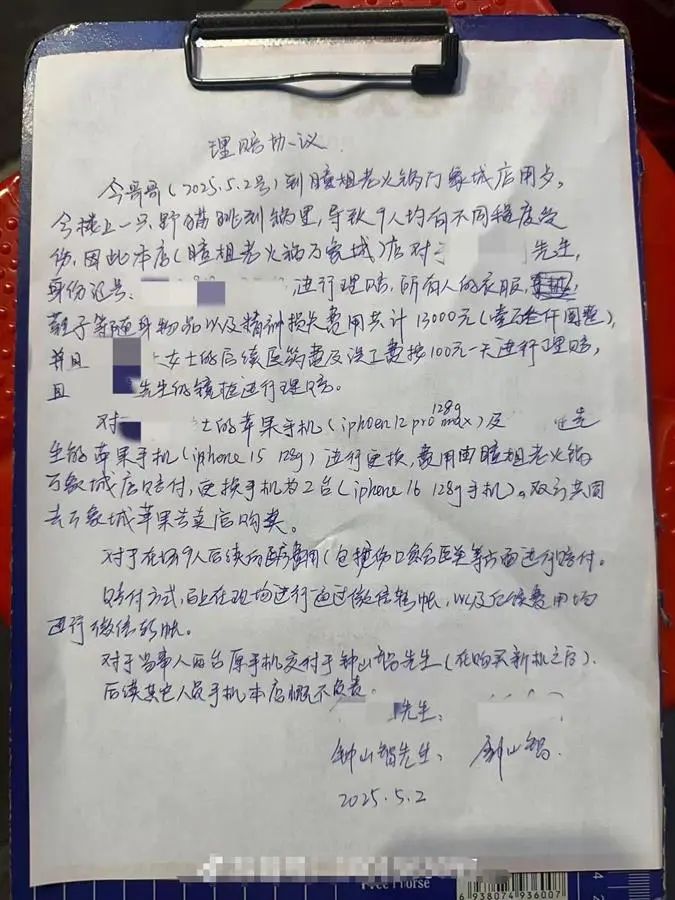 理赔协议
今哥哥(2025.5.2号)到瞳姐老火锅万象城店用歺,
今楼上一只野猫跳到锅里,导致9人均有不同程度受
伤,因此本店(瞳姐老火锅万象城)店对于 先生,
身份证号: 进行理赔,所有人的衣服,
鞋子等随身物品以及精神损失费用共计13000元(壹万叁仟圆整),
并且 女士的后续医药费及误工费按100元一天进行理赔,
且 先生的镜框进行理赔。
对 士的苹果手机(iphoen 12 pro max 128g)及 先
生的苹果手机(iphone 15 128g)进行更换,费用由瞳姐老火锅
万象城店赔付,更换手机为2台(iphone 16 128g手机)。双方共同
去万象城苹果专卖店购买。
对于在场9人后续后 费用(包括伤口愈合医美等方面进行赔付。
赔付方式,在现场进行通过微信转帐,以及后续费用均
进行微信转帐。
对于当事人两台原手机交付于钟山智先生(在购买新机之后),
后续其它人员手机本店概不负责。
先生:
钟山智先生: 钟山智.
2025.5.2
Free Horse
6 938074 936007